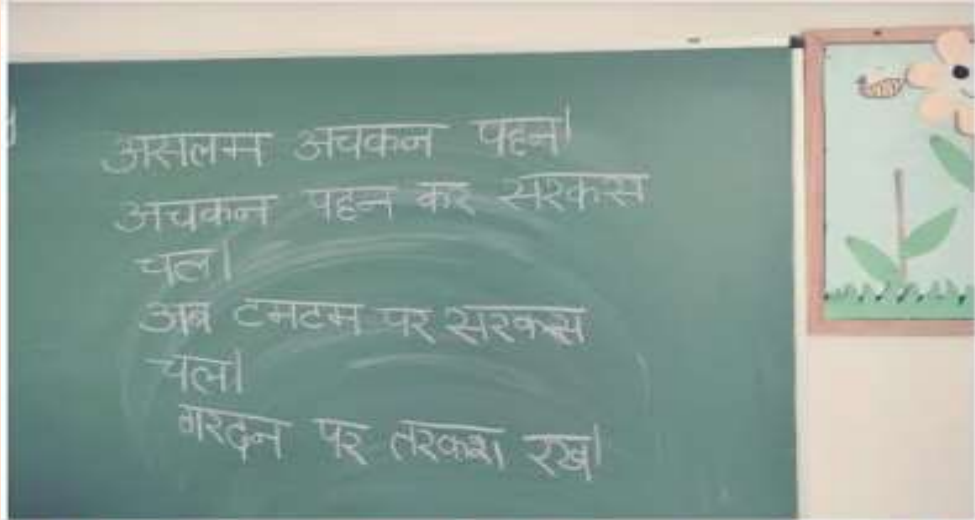 असलम अचकन पहन।
अचकन पहन कर सरकस
चल।
अब टमटम पर सरकस
चल।
गरदन पर तरकश रख।